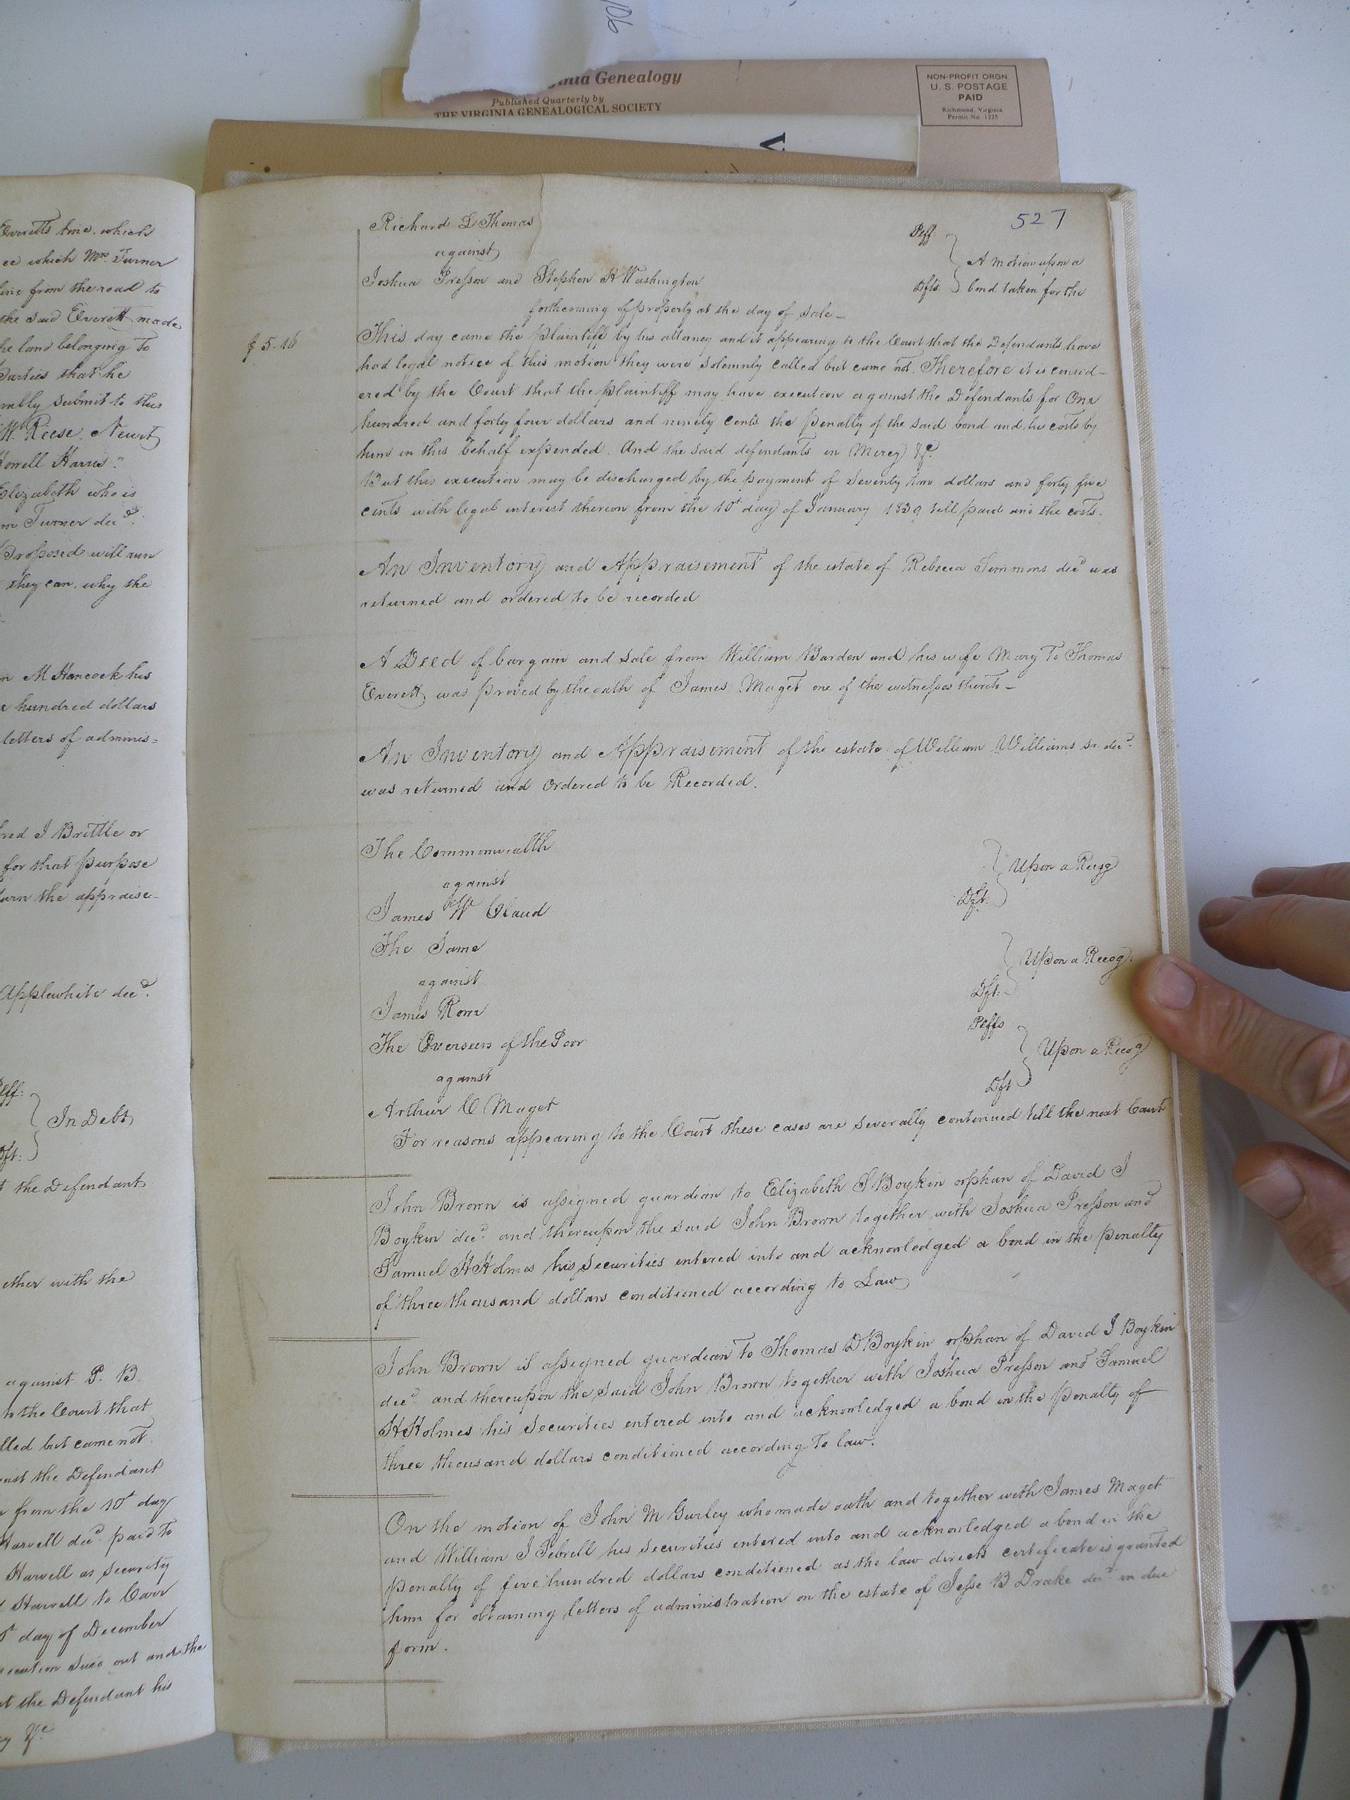 106
Virginia Genealogy
Published Quarterly by
THE VIRGINIA GENEALOGICAL SOCIETY
NON-PROFIT ORGN
U. S. POSTAGE
PAID
Richmond, Virginia
Permit No. 1225
V
Everetts line, which
ee which Mrs. Turner
line from the road to
the said Everett made
he land belonging to
Parties that he
submit to this
W. Reese, Newit
Howell Harris."
Elizabeth who is
m Turner decd.
proposed will run
they can, why the
n M Hancock his
e hundred dollars
letters of adminis=
red J Brittle or
for that purpose
turn the appraise-
Applewhite decd.
Plff.
In Debt
Dft.
t the Defendant
ether with the
against P. B.
to the Court that
lled but came not
inst the Defendant
from the 10t day
Harvell decd. paid to
Harvell as security
Harvell to Carr
day of December
execution sued out and the
t the Defendant his
y &c
527
Richard L Thomas Plff
against
A motion upon a
Joshua Presson and Stephen H Washington Dfts
bond taken for the
forthcoming of property at the day of sale-
$ 5.16
This day came the plaintiff by his attorney and it appearing to the Court that the Defendants have
had legal notice of this motion they were solemnly called but came not. Therefore it is consid-
ered by the Court that the plaintiff may have execution against the Defendants for One
hundred and forty four dollars and ninety cents the penalty of the said bond and his costs by
him in this behalf expended. And the said defendants in Mercy &c.
But this execution may be discharged by the payment of Seventy two dollars and forty five
cents with legal interest thereon from the 10t day of January 1839 till paid and the costs.
An Inventory and Appraisement of the estate of Rebecca Simmons decd was
returned and ordered to be recorded
A Deed of bargain and sale from William Barden and his wife Mary to Thomas
Everett was proved by the oath of James Maget one of the witnesses thereto-
An Inventory and Appraisement of the estate of William Williams sr decd.
was returned and Ordered to be Recorded.
The Commonwealth
against
Upon a Recog
James W Claud Dft.
The Same
against
Upon a Recog.
James Rom Dft.
The Overseers of the Poor Plffs
against
Upon a Recog
Arthur C Maget Dft
For reasons appearing to the Court these cases are severally continued till the next Court
John Brown is assigned guardian to Elizabeth S Boykin orphan of David J
Boykin decd. and thereupon the said John Brown together with Joshua Presson and
Samuel H Holmes his securities entered into and acknowledged a bond in the penalty
of three thousand dollars conditioned according to Law
John Brown is assigned guardian to Thomas D Boykin orphan of David J Boykin
decd and thereupon the said John Brown together with Joshua Presson and Samuel
H Holmes his securities entered into and acknowledged a bond in the penalty of
three thousand dollars conditioned according to law.
On the motion of John M Gurley who made oath and together with James Maget
and William J Sebrell his securities entered into and acknowledged a bond in the
penalty of five hundred dollars conditioned as the law directs certificate is granted
him for obtaining letters of administration on the estate of Jesse B Drake decd in due
form.